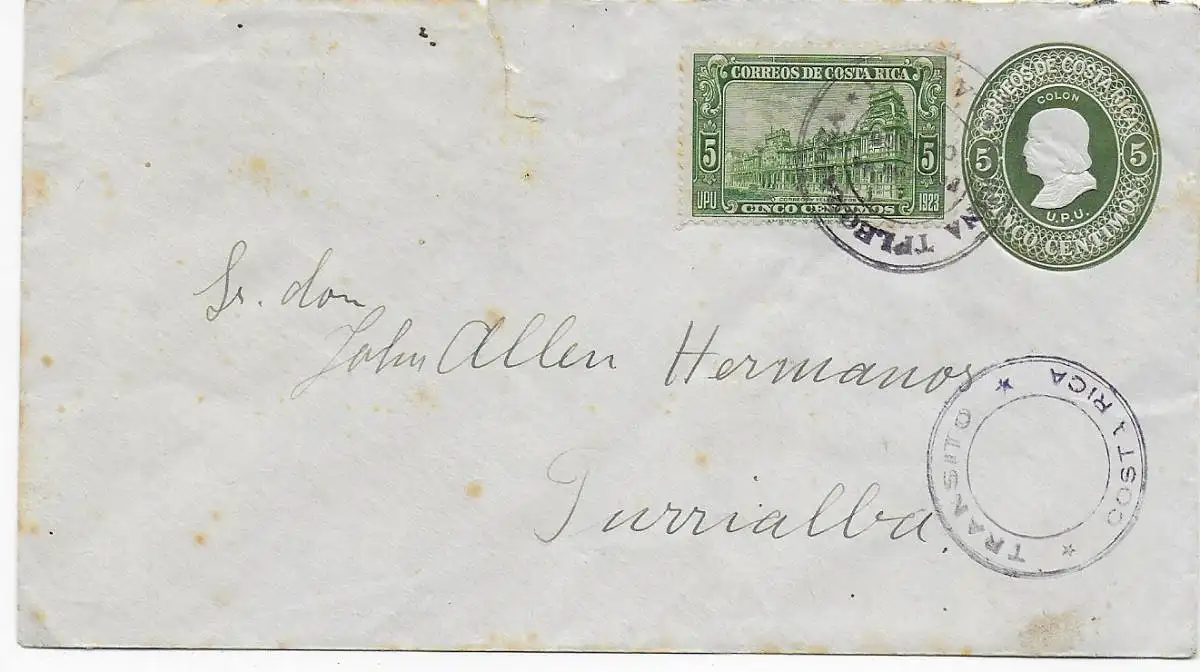 CORREOS DE COSTA RICA
5 5
UPU 1923
CINCO CENTIMOS
CORREOS DE COSTA RICA
COLON
5 5
U.P.U.
CINCO CENTIMOS
Sr. don
John Allen Hermanos
Turrialba.
TRANSITO
COSTA RICA